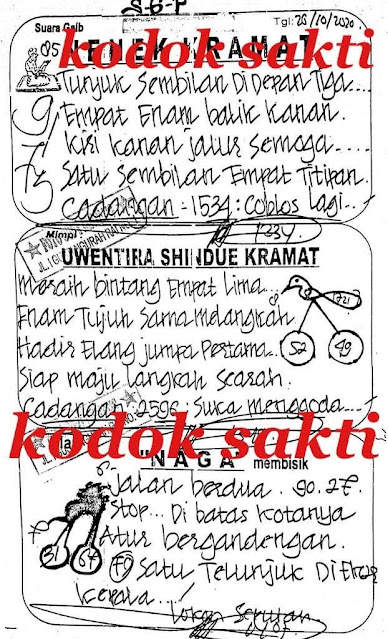 S.G.P
Suara Gaib
Tgl: 28/10/2020
NENEK KRAMAT
kodok sakti
Tunjuk Sembilan Di Depan Tiga...
Empat Enam balik Kanan.
Kiri Kanan jalur Semoga
Satu Sembilan Empat Titipan.
Cadangan : 1534 : Coblos Lagi...
973
Mimpi :
1234
UWENTIRA SHINDUE KRAMAT
Meraih bintang Empat Lima...
Enam Tujuh Sama melangkah
Hadir Elang jumpa Pertama
Siap maju langkah Searah.
Cadangan : 2596 : Suka menggoda
721
52 49
kodok sakti
"NAGA" membisik
Jalan berdua . 90.27.
Stop... Di batas Kotanya
Atur bergandengan.
Satu Telunjuk Di
Kepala
31 67